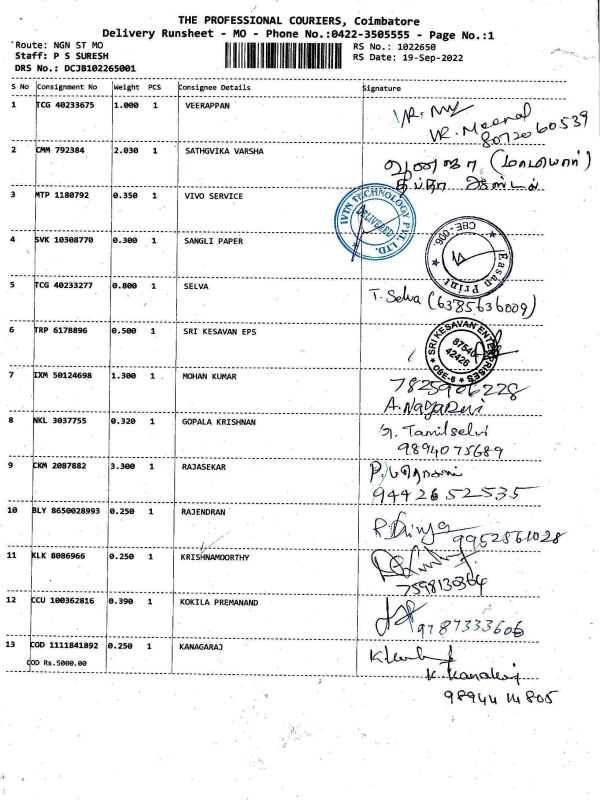 THE PROFESSIONAL COURIERS, Coimbatore
Delivery Runsheet - MO - Phone No.:0422-3505555 - Page No.:1
Route: NGN ST MO RS No.: 1022650
Staff: P S SURESH RS Date: 19-Sep-2022
DRS No.: DCJB102265001
S No Consignment No Weight PCS Consignee Details Signature
1 TCG 40233675 1.000 1 VEERAPPAN
VR. Meenal
8072060539
2 CMM 792384 2.030 1 SATHGVIKA VARSHA
(மாமியார்)
3 MTP 1180792 0.350 1 VIVO SERVICE
IVIN TECHNOLOGY PVT. LTD.
DELIVERED
4 SVK 10308770 0.300 1 SANGLI PAPER
Easan Print
CBE-006.
5 TCG 40233277 0.800 1 SELVA
T. Selva (6385636009)
6 TRP 6178896 0.500 1 SRI KESAVAN EPS
SRI KESAVAN ENTERPRISES
87540
42426
CBE-6
7 IXM 50124698 1.300 1 MOHAN KUMAR
7825906228
A.Nagadevi
8 NKL 3037755 0.320 1 GOPALA KRISHNAN
G. Tamilselvi
9894075689
9 CKM 2087882 3.300 1 RAJASEKAR
9442652535
10 BLY 8650028993 0.250 1 RAJENDRAN
9952561028
11 KLK 8086966 0.250 1 KRISHNAMOORTHY
12 CCU 100362816 0.390 1 KOKILA PREMANAND
9787333606
13 COD 1111841892 0.250 1 KANAGARAJ
COD Rs.5000.00
K. Kanakaraj
9894414805